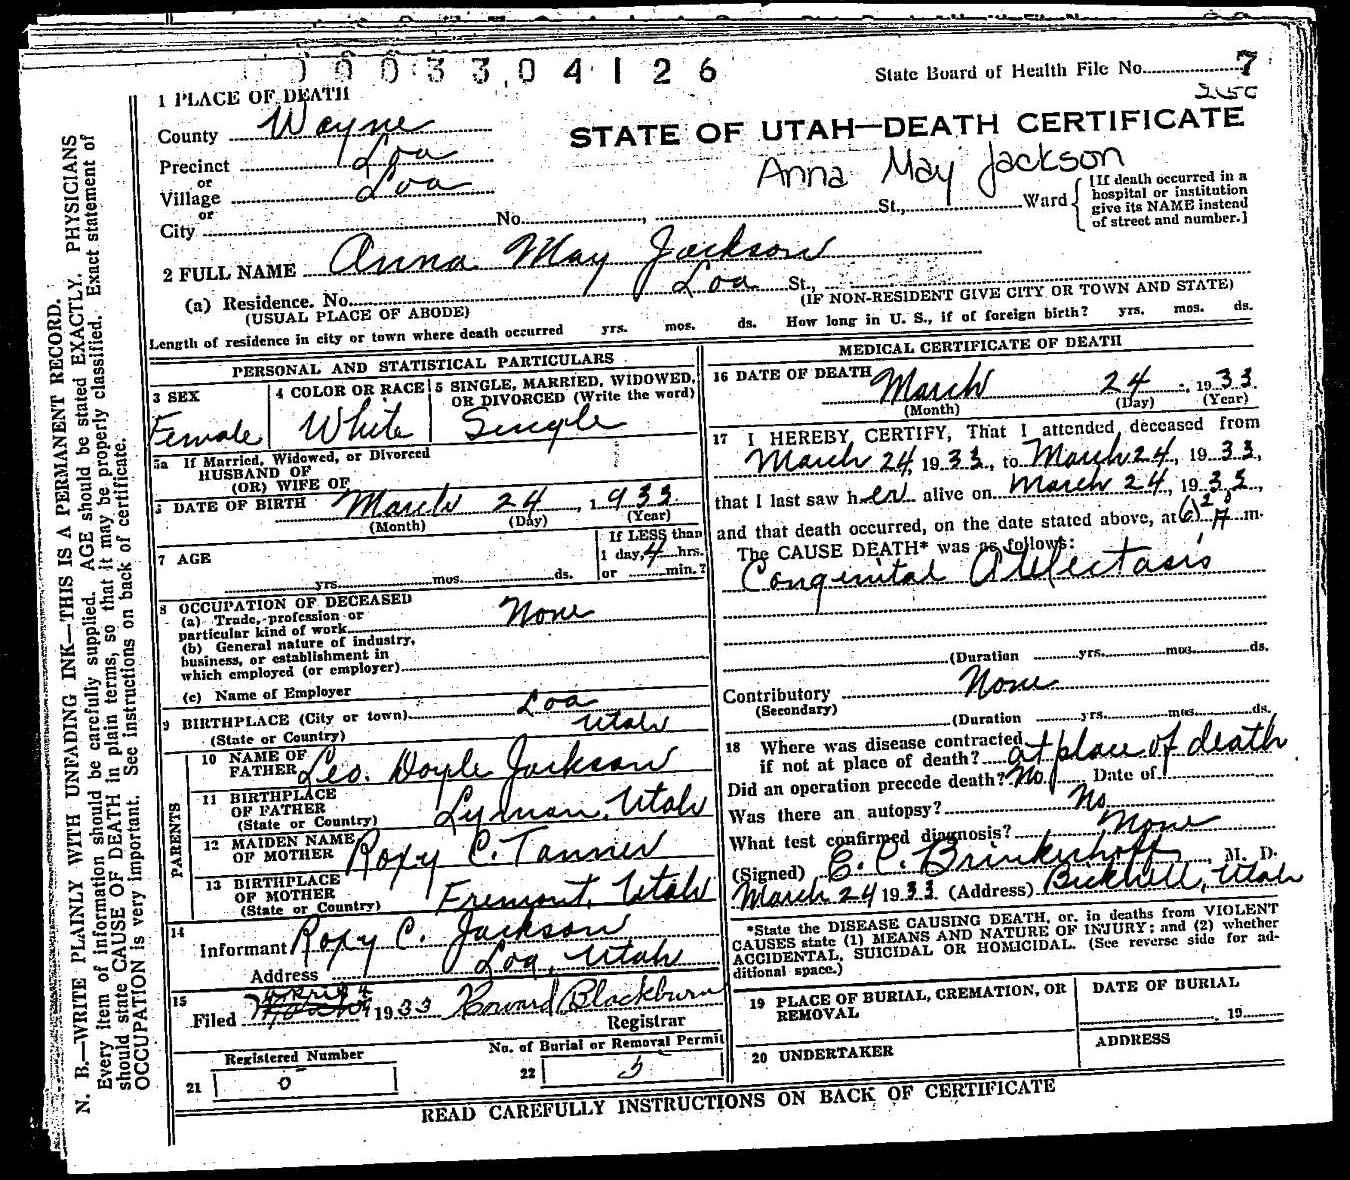 0003304126
State Board of Health File No. 7
1 PLACE OF DEATH
County Wayne
STATE OF UTAH—DEATH CERTIFICATE
Precinct Loa
Anna May Jackson
or
Village Loa
or
City No. , St., Ward
[If death occurred in a
hospital or institution
give its NAME instead
of street and number.]
2 FULL NAME Anna May Jackson
(a) Residence. No. Loa St.,
(USUAL PLACE OF ABODE) (IF NON-RESIDENT GIVE CITY OR TOWN AND STATE)
Length of residence in city or town where death occurred yrs. mos. ds. How long in U. S., if of foreign birth? yrs. mos. ds.
PERSONAL AND STATISTICAL PARTICULARS
3 SEX
Female
4 COLOR OR RACE
White
5 SINGLE, MARRIED, WIDOWED,
OR DIVORCED (Write the word)
Single
5a If Married, Widowed, or Divorced
HUSBAND OF
(OR) WIFE OF
DATE OF BIRTH March 24, 1933
(Month) (Day) (Year)
7 AGE
yrs. mos. ds.
If LESS than
1 day, 4 hrs.
or min.?
8 OCCUPATION OF DECEASED
(a) Trade, profession or
particular kind of work None
(b) General nature of industry,
business, or establishment in
which employed (or employer)
(c) Name of Employer
9 BIRTHPLACE (City or town) Loa
(State or Country) Utah
PARENTS
10 NAME OF
FATHER Leo. Doyle Jackson
11 BIRTHPLACE
OF FATHER
(State or Country) Lyman, Utah
12 MAIDEN NAME
OF MOTHER Roxy C. Tanner
13 BIRTHPLACE
OF MOTHER
(State or Country) Fremont, Utah
14
Informant Roxy C. Jackson
Address Loa, Utah
15
Filed 1933 Howard Blackburn
Registrar
Registered Number
21 0
No. of Burial or Removal Permit
22
MEDICAL CERTIFICATE OF DEATH
16 DATE OF DEATH March 24, 1933
(Month) (Day) (Year)
17 I HEREBY CERTIFY, That I attended deceased from
March 24, 1933, to March 24, 1933,
that I last saw her alive on March 24, 1933,
and that death occurred, on the date stated above, at A m.
The CAUSE DEATH* was as follows:
Congenital Atelectasis
(Duration yrs. mos. ds.
Contributory None
(Secondary)
(Duration yrs. mos. ds.
18 Where was disease contracted
if not at place of death? at place of death
Did an operation precede death? No Date of
Was there an autopsy? No
What test confirmed diagnosis? None
(Signed) E. C. Brinkerhoff, M. D.
March 24 1933 (Address) Bicknell, Utah
*State the DISEASE CAUSING DEATH, or, in deaths from VIOLENT
CAUSES state (1) MEANS AND NATURE OF INJURY; and (2) whether
ACCIDENTAL, SUICIDAL OR HOMICIDAL. (See reverse side for ad-
ditional space.)
19 PLACE OF BURIAL, CREMATION, OR
REMOVAL
DATE OF BURIAL
, 19
20 UNDERTAKER
ADDRESS
READ CAREFULLY INSTRUCTIONS ON BACK OF CERTIFICATE
N. B.—WRITE PLAINLY WITH UNFADING INK—THIS IS A PERMANENT RECORD.
Every item of information should be carefully supplied. AGE should be stated EXACTLY. PHYSICIANS
should state CAUSE OF DEATH in plain terms, so that it may be properly classified. Exact statement of
OCCUPATION is very important. See instructions on back of certificate.